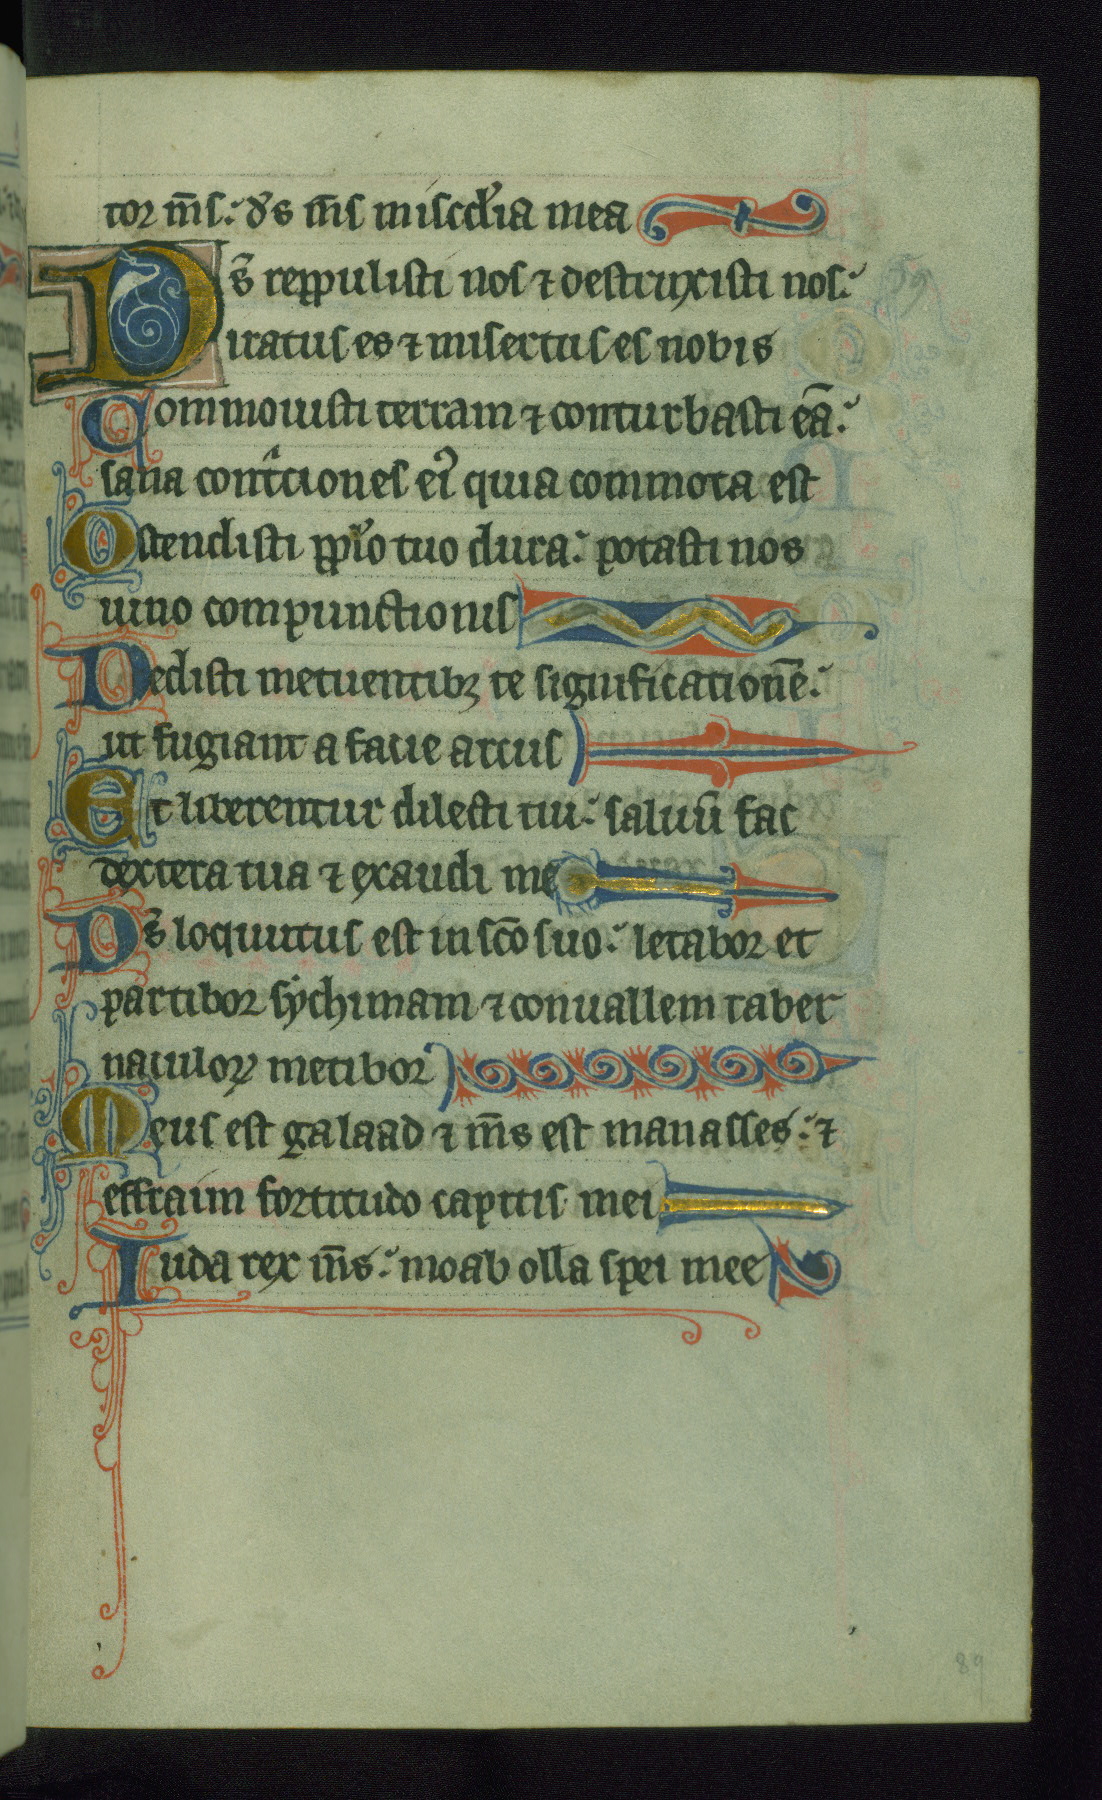 tor m̅s: d̓s m̅s misc̅dia mea
D̅s reppulisti nos ⁊ destruxisti nos:
iratus es ⁊ misertus es nobis
Commouisti terram ⁊ conturbasti ea̅:
sana cont̓ciones ei᾽ quia commota est
Ostendisti pp̅lo tuo dura: potasti nos
uino compunctionis
Dedisti metuentibꝫ te significatione̅:
ut fugiant a facie arcus
Et liberentur dilecti tui: saluu̅ fac
dextera tua ⁊ exaudi me
D̅s loquutus est in sc̅o suo: letabor et
partibor sychimam ⁊ conuallem taber
naculoꝝ metibor
Meus est galaad ⁊ m̅s est manasses: ⁊
effraim fortitudo capitis mei
Iuda rex m̅s: moab olla spei mee
89